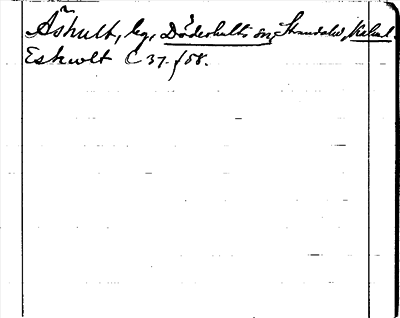 Åshult, by, Döderhults sn, Stranda hd, Kalm l.
Eskwlt C 37. f 58.